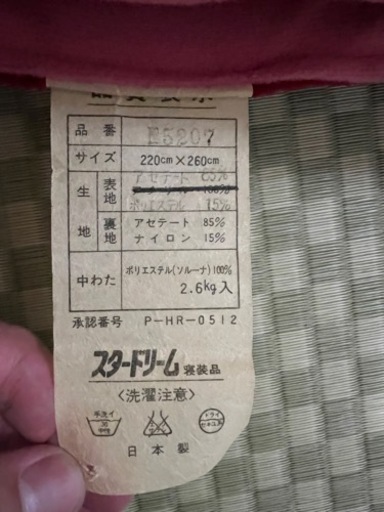 品質表示
品番 E5207
サイズ 220cm×260cm
生地 表地 アセテート 85%
ポリエステル 15%
裏地 アセテート 85%
ナイロン 15%
中わた ポリエステル(ソルーナ)100%
2.6kg入
承認番号 P-HR-0512
スタードリーム 寝装品
〈洗濯注意〉
手洗イ 30 中性 ドライ セキユ系
日本製